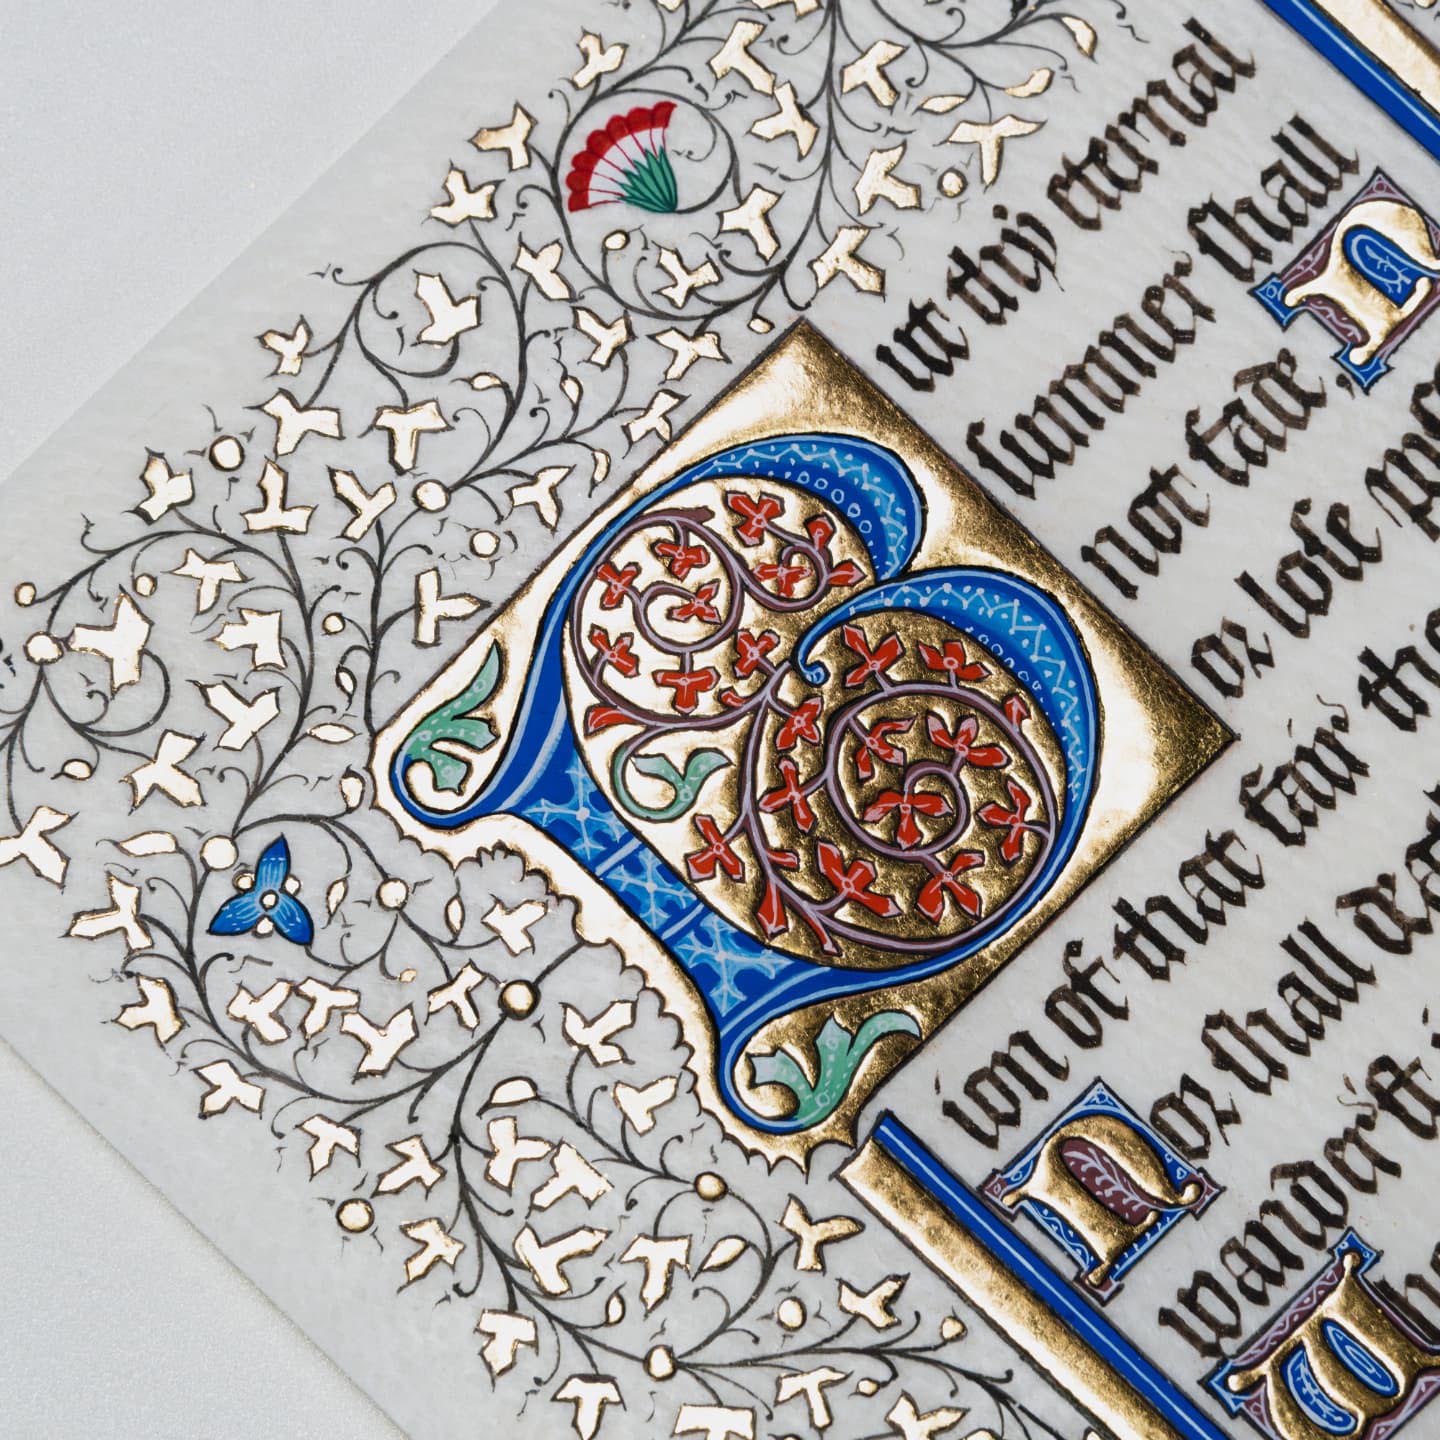 But thy eternal
summer shall
not fade, N
or lose
ion of that fair
Nor shall
wander'st
W